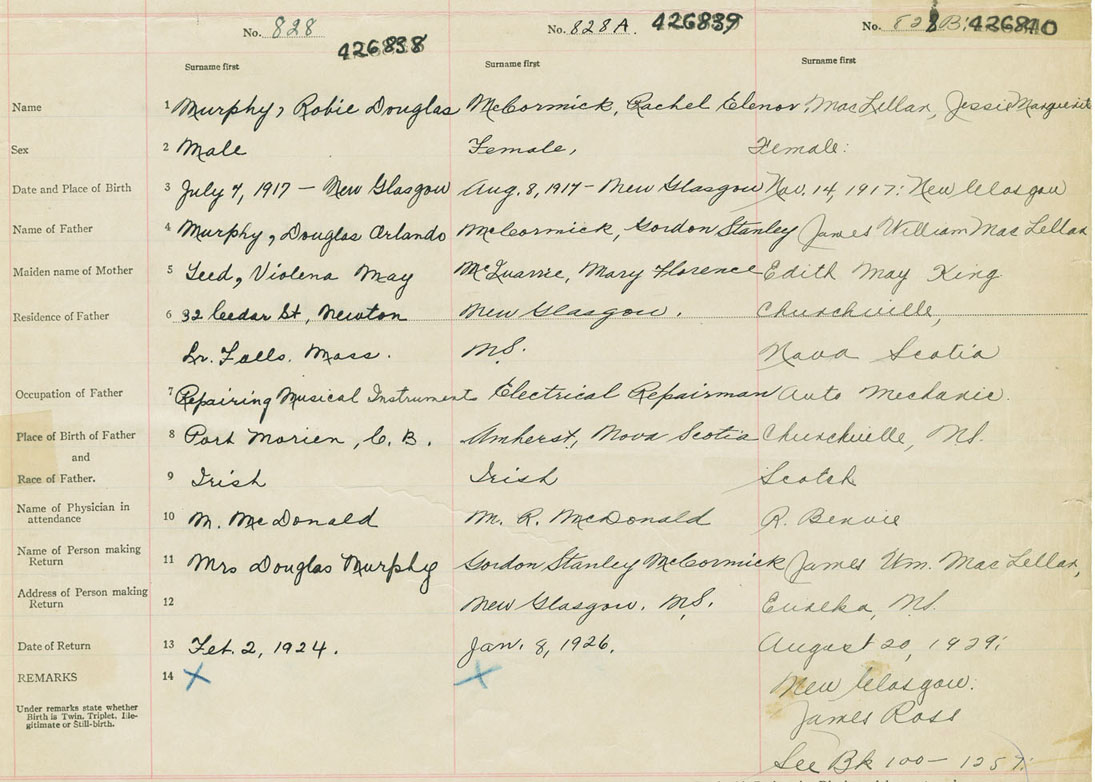 No. 828 426838 No. 828 A. 426839 No. 828 B. 426840
Surname first Surname first Surname first
Name 1 Murphy, Robie Douglas McCormick, Rachel Elenor, MacLellan, Jessie Marguerite
Sex 2 Male Female, Female:
Date and Place of Birth 3 July 7, 1917 – New Glasgow Aug. 8, 1917 – New Glasgow Nov. 14, 1917: New Glasgow
Name of Father 4 Murphy, Douglas Orlando McCormick, Gordon Stanley James William MacLellan
Maiden name of Mother 5 Violena May McQuarrie, Mary Florence Edith May King
Residence of Father 6 32 Cedar St, Newton New Glasgow. Churchville,
Lr. Falls. Mass. N.S. Nova Scotia
Occupation of Father 7 Repairing Musical Instruments Electrical Repairman Auto Mechanic.
Place of Birth of Father 8 Port Morien, C.B. Amherst, Nova Scotia Churchville, N.S.
and
Race of Father. 9 Irish Irish Scotch
Name of Physician in
attendance 10 M. McDonald M. R. McDonald R. Benvie
Name of Person making
Return 11 Mrs Douglas Murphy Gordon Stanley McCormick James Wm. MacLellan,
Address of Person making
Return 12 New Glasgow. N.S. Eureka, N.S.
Date of Return 13 Feb. 2, 1924. Jan. 8, 1926. August 20, 1929:
REMARKS 14 X X New Glasgow.
Under remarks state whether
Birth is Twin, Triplet, Ille-
gitimate or Still-birth.
James Ross
See Bk 100 –